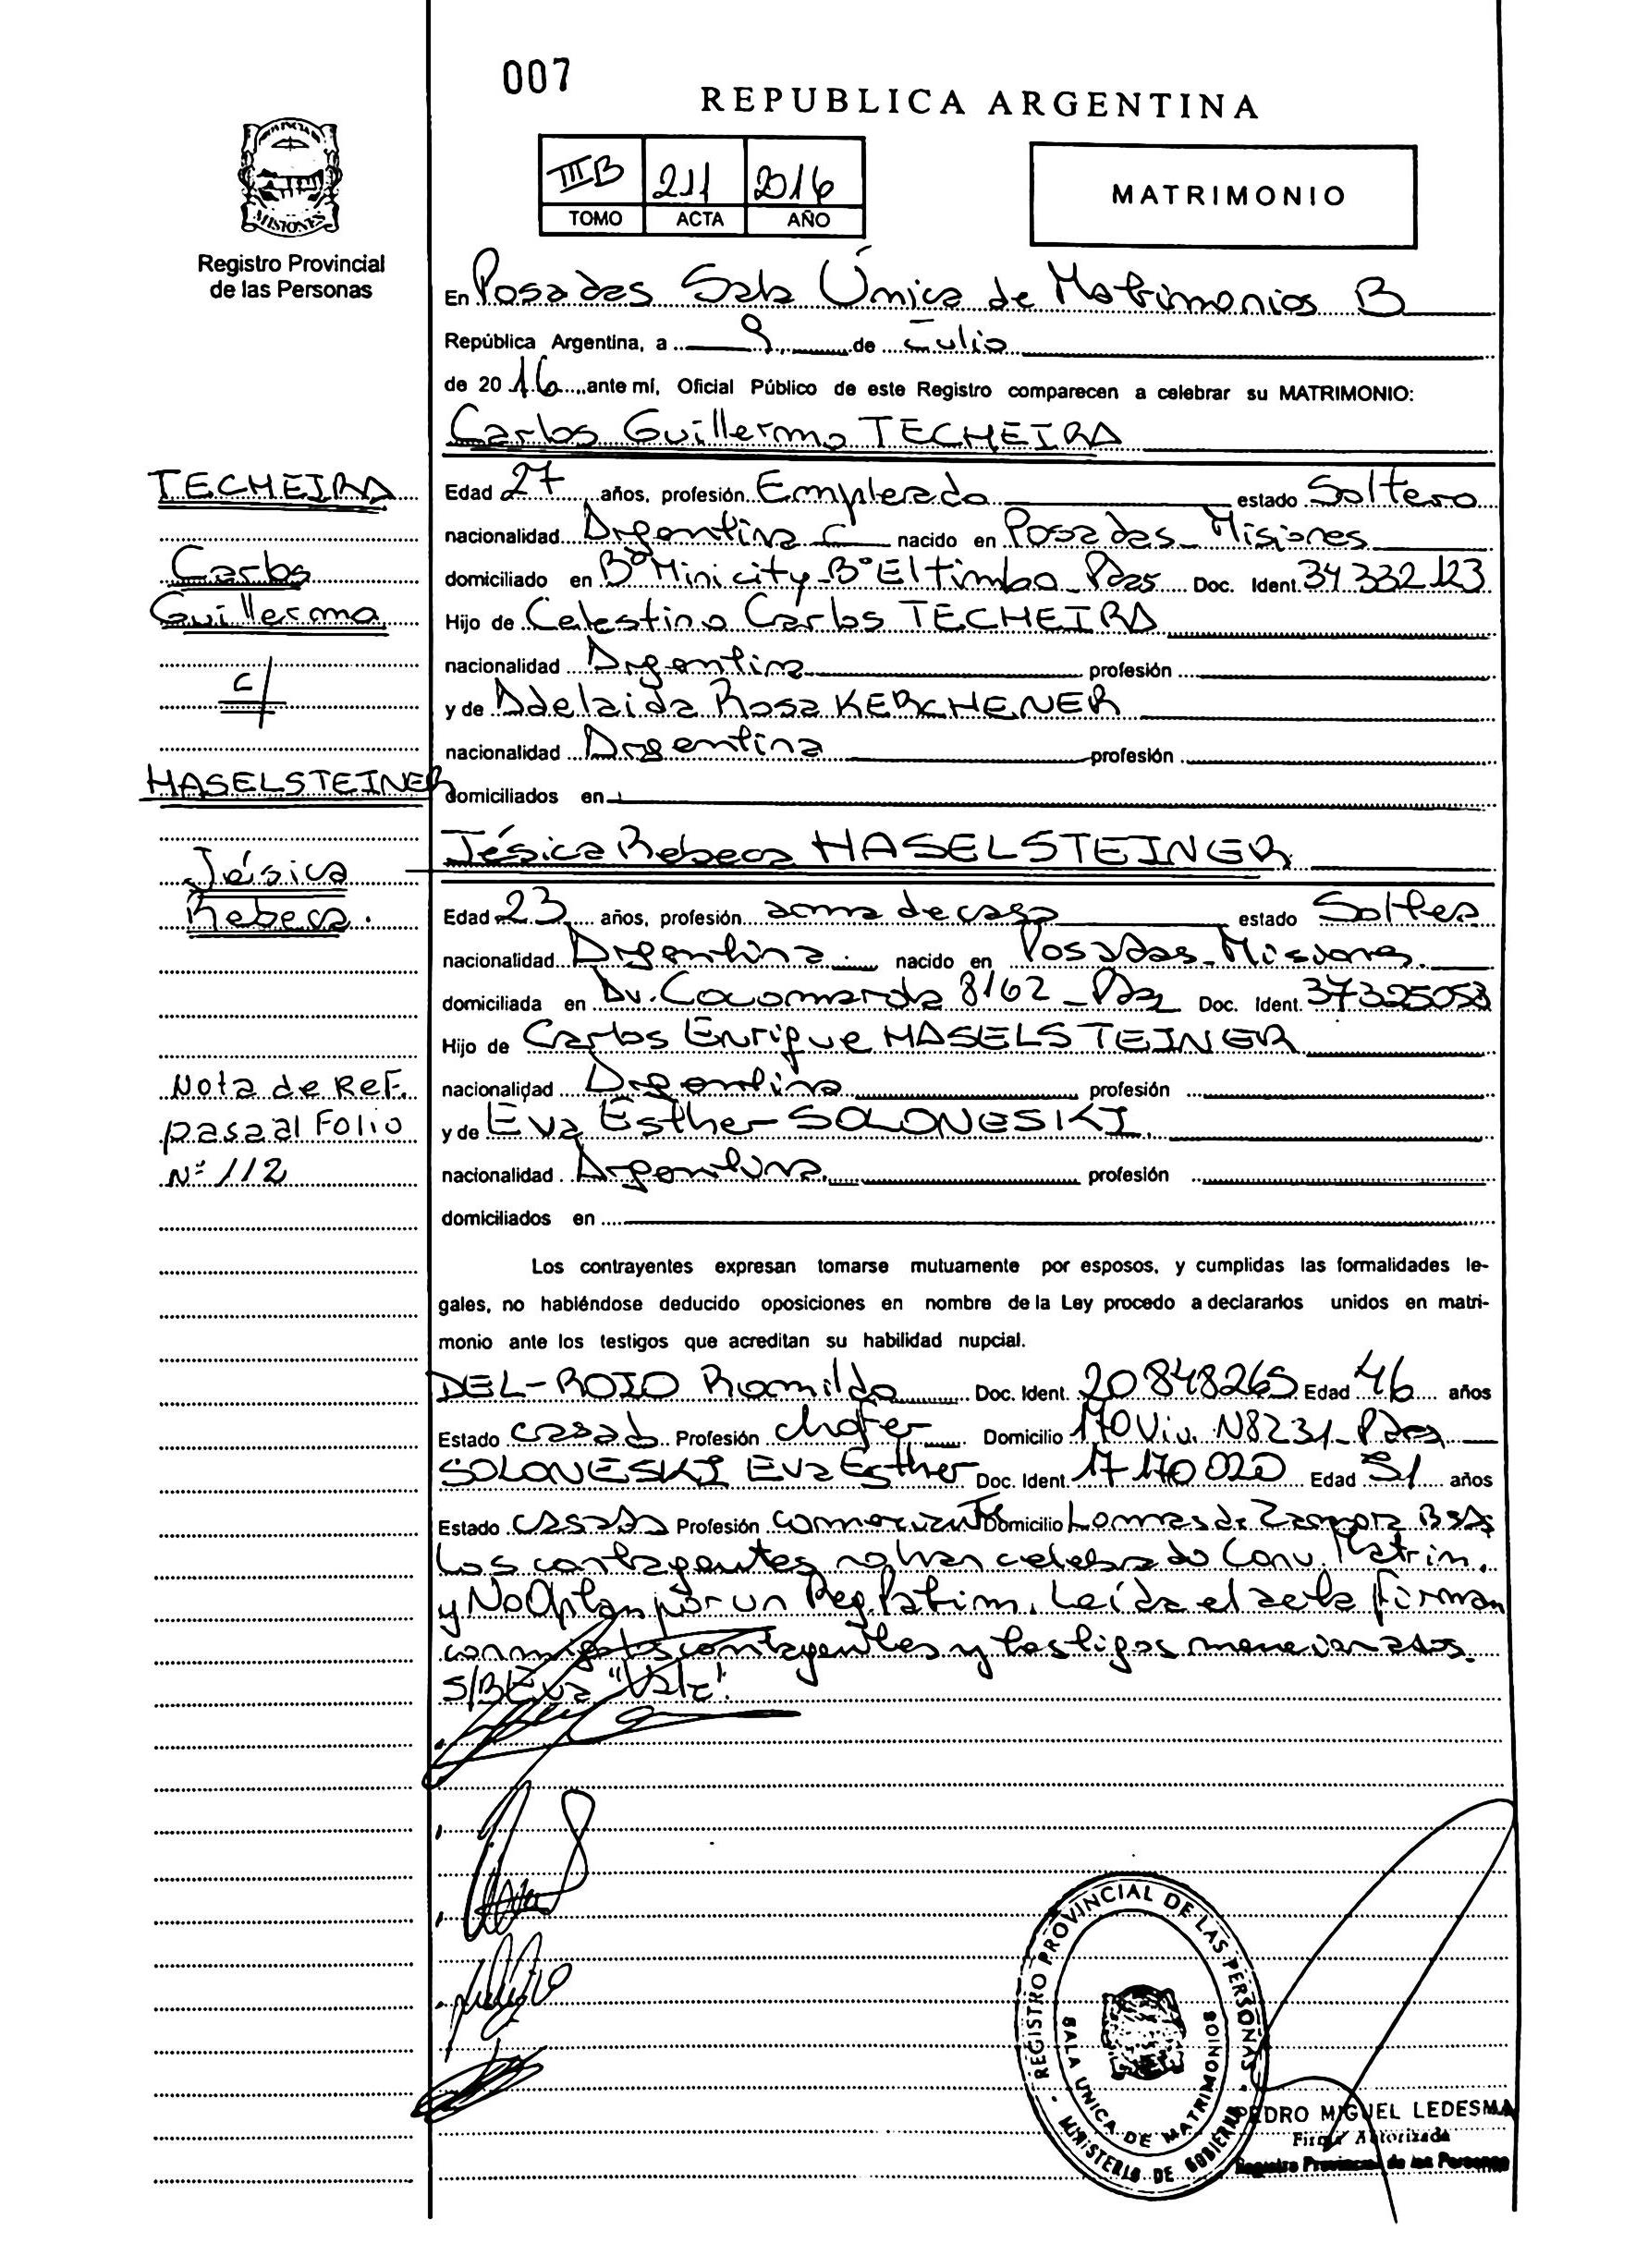 007
REPUBLICA ARGENTINA
III B 211 2016
TOMO ACTA AÑO
MATRIMONIO
MISIONES
Registro Provincial
de las Personas
En Posadas Sala Única de Matrimonios B
República Argentina, a 9 de Julio
de 2016 ante mí, Oficial Público de este Registro comparecen a celebrar su MATRIMONIO:
Carlos Guillermo TECHEIRA
TECHEIRA
Carlos
Guillermo
c/
HASELSTEINER
Jésica
Rebeca.
Nota de Ref.
pasa al Folio
Nº 112
Edad 27 años, profesión Empleado estado Soltero
nacionalidad Argentina nacido en Posadas - Misiones
domiciliado en Bº Minicity - Bº El timbo - Pdas Doc. Ident. 34.332.123
Hijo de Celestino Carlos TECHEIRA
nacionalidad Argentina profesión
y de Adelaida Rosa KERCHENER
nacionalidad Argentina profesión
domiciliados en
Jésica Rebeca HASELSTEINER
Edad 23 años, profesión ama de casa estado Soltera
nacionalidad Argentina nacido en Posadas - Misiones
domiciliada en Av. Cocomarola 8162 - Pdas Doc. Ident. 37325053
Hijo de Carlos Enrique HASELSTEINER
nacionalidad Argentina profesión
y de Eva Esther SOLONESKI.
nacionalidad Argentina profesión
domiciliados en
Los contrayentes expresan tomarse mutuamente por esposos, y cumplidas las formalidades le-
gales, no habiéndose deducido oposiciones en nombre de la Ley procedo a declararlos unidos en matri-
monio ante los testigos que acreditan su habilidad nupcial.
DEL-ROIO Romildo Doc. Ident. 20848265 Edad 46 años
Estado casado Profesión chofer Domicilio 170 Viv. N8231 - Pdas
SOLONESKI Eva Esther Doc. Ident. 17.170.020 Edad 51 años
Estado casada Profesión comerciante Domicilio Lomas de Zamora BsAs
Los contrayentes no han celebrado Conv. Matrim.
y No Optan por un Reg. Patrim. Leída el acta firman
conmigo los contrayentes y testigos mencionados.
S/B Eva "Vale".
REGISTRO PROVINCIAL DE LAS PERSONAS
SALA UNICA DE MATRIMONIOS
MINISTERIO DE GOBIERNO
PEDRO MIGUEL LEDESMA
Firma Autorizada
Registro Provincial de las Personas